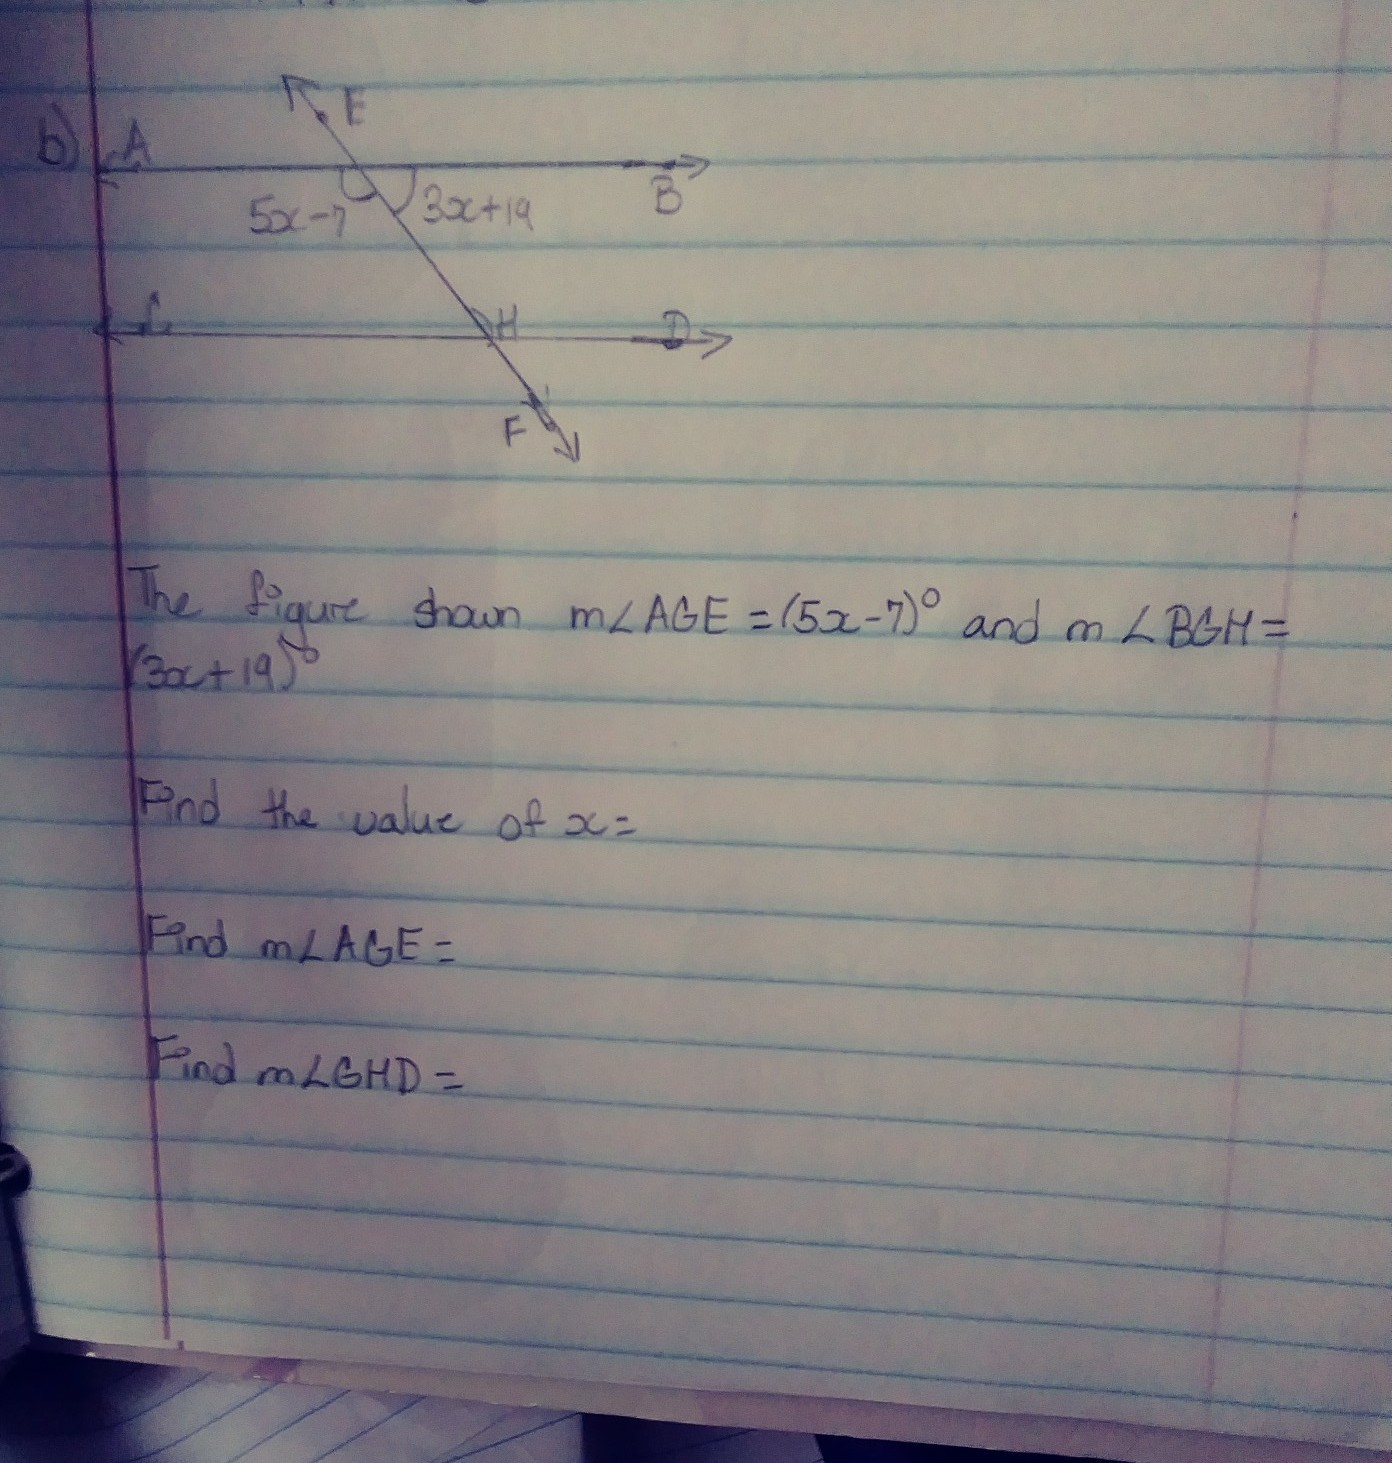 b)
E
A
B
5x-7
3x+19
C
H
D
F
The figure shown m∠AGE = (5x-7)⁰ and m∠BGH =
(3x+19)⁰
Find the value of x =
Find m∠AGE =
Find m∠GHD =